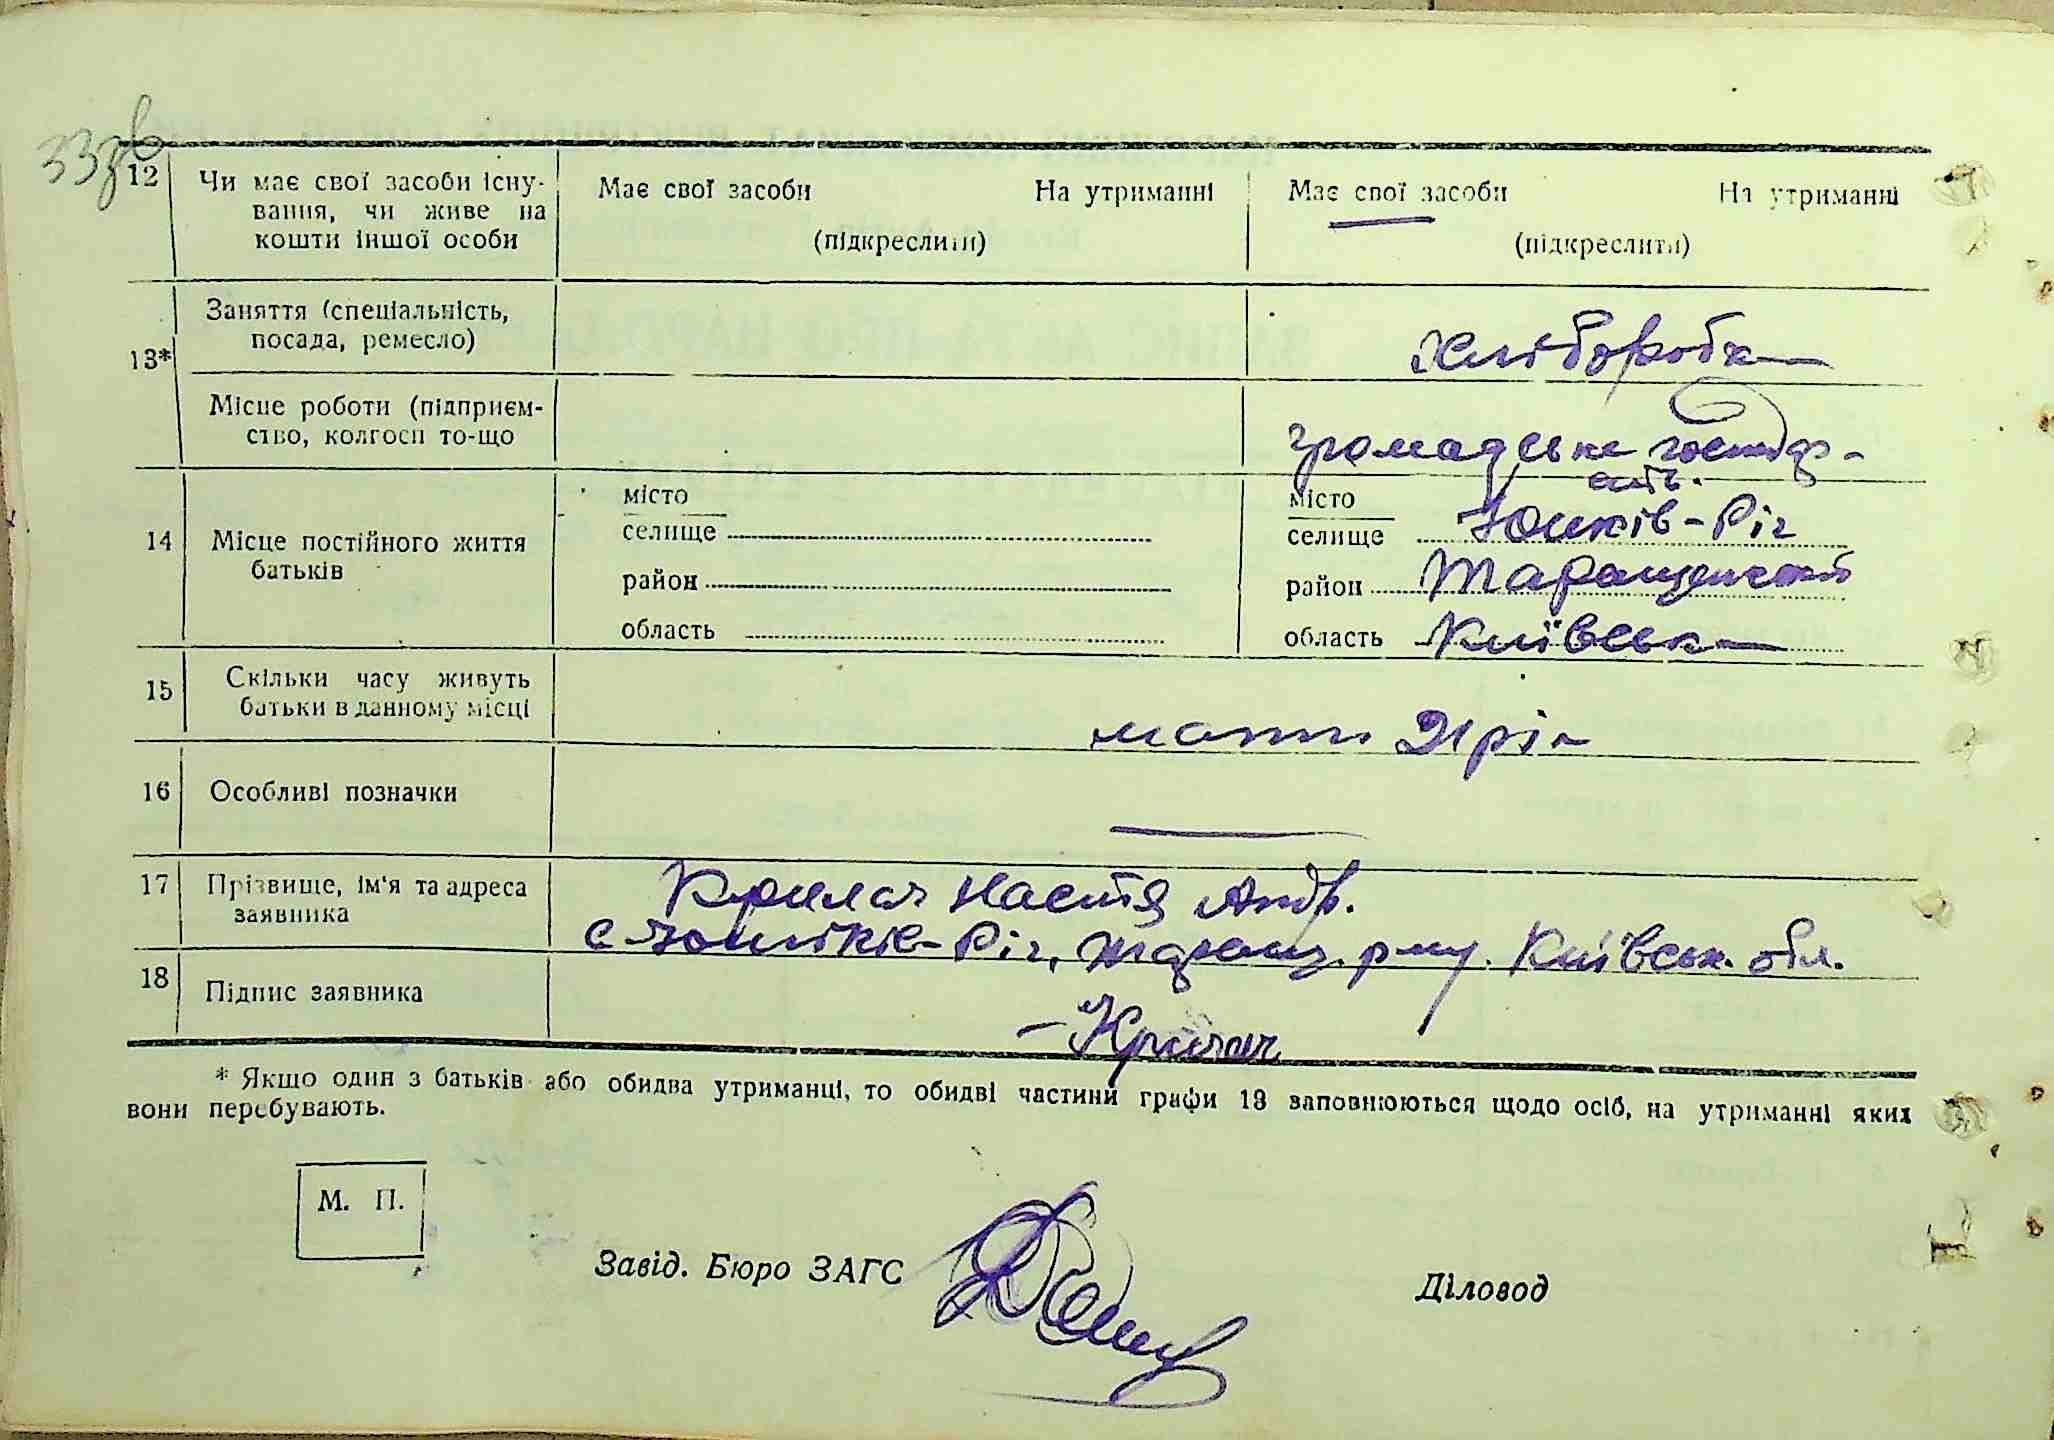 33зв
12 Чи має свої засоби існу- Має свої засоби На утриманні Має свої засоби На утриманні
вання, чи живе на
кошти іншої особи (підкреслити) (підкреслити)
13* Заняття (спеціальність,
посада, ремесло) хліборобка
Місце роботи (підприєм-
ство, колгосп то-що громадське господар-
ств.
14 Місце постійного життя
батьків
місто місто
селище селище Юшків-Ріг
район район Таращанський
область область Київська
15 Скільки часу живуть
батьки в данному місці мати 21 рік
16 Особливі позначки
17 Прізвище, ім'я та адреса
заявника
Крилач Настя Андр.
с Юшків-Ріг, Таращ. р-ну. Київськ. обл.
18 Підпис заявника Крилач
* Якщо один з батьків або обидва утриманці, то обидві частини графи 13 заповнюються щодо осіб, на утриманні яких
вони перебувають.
М. П.
Завід. Бюро ЗАГС
Діловод